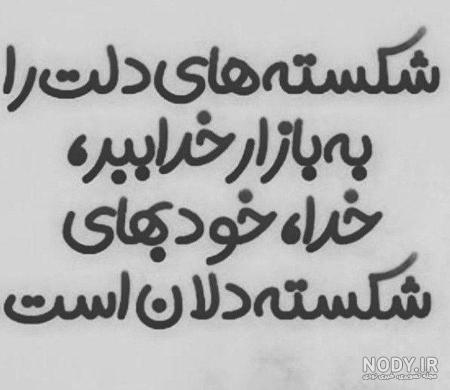 شکسته‌های دلت را
به بازار خدا ببر،
خدا، خود بهای
شکسته دلان است
NODY.IR